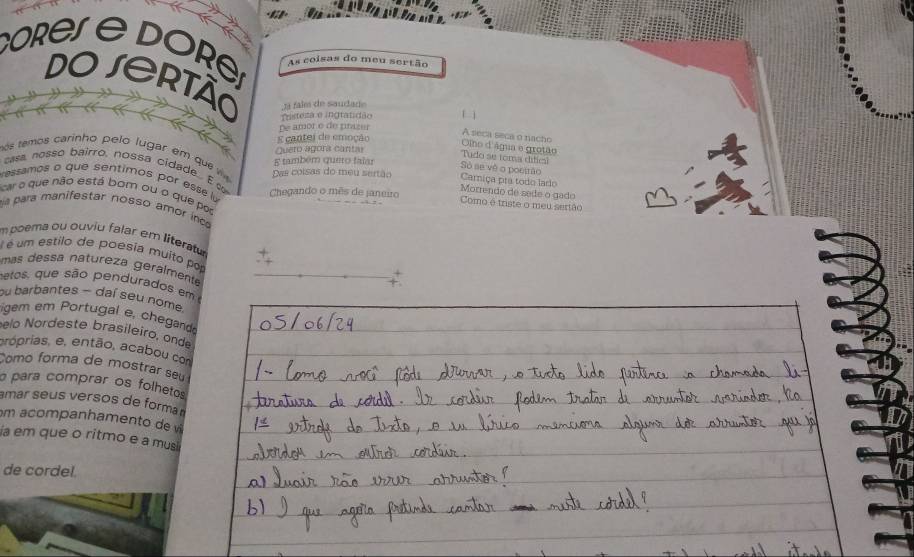 CORES E DORES
DO SERTÃO
nós temos carinho pelo lugar em que
casa, nosso bairro, nossa cidade... E
ressamos o que sentimos por esse
car o que não está bom ou o que
ja para manifestar nosso amor
m poema ou ouviu falar em literatur
l é um estilo de poesia muito pop
mas dessa natureza geralmente
hetos, que são pendurados em
ou barbantes – daí seu nome.
igem em Portugal e, chegando
elo Nordeste brasileiro, onde
próprias, e, então, acabou con
Como forma de mostrar seu
o para comprar os folhetos
amar seus versos de forma
m acompanhamento de vi
ia em que o ritmo e a musi
de cordel.
As coisas do meu sertão
Já falei de saudade
Tristeza e ingratidão
De amor e de prazer
E cantei de emoção
Quero agora cantar
E também quero falar
Das coisas do meu sertão
Chegando o mês de janeiro
[...]
A seca seca o riacho
Olho d'água e grotão
Tudo se torna difícil
Só se vê o poeirão
Carniça pra todo lado
Morrendo de sede o gado
Como é triste o meu sertão
05/06/24
1- Como você pode observar, o texto lido pertence a chamada li-
teratura de cordel. Os cordéis podem tratar de assuntos variados. Na
1ª estrofe do texto, o eu lírico menciona alguns dos assuntos que já
abordou em outros cordéis.
a) Quais são esses assuntos?
b) O que agora pretende cantar neste cordel?